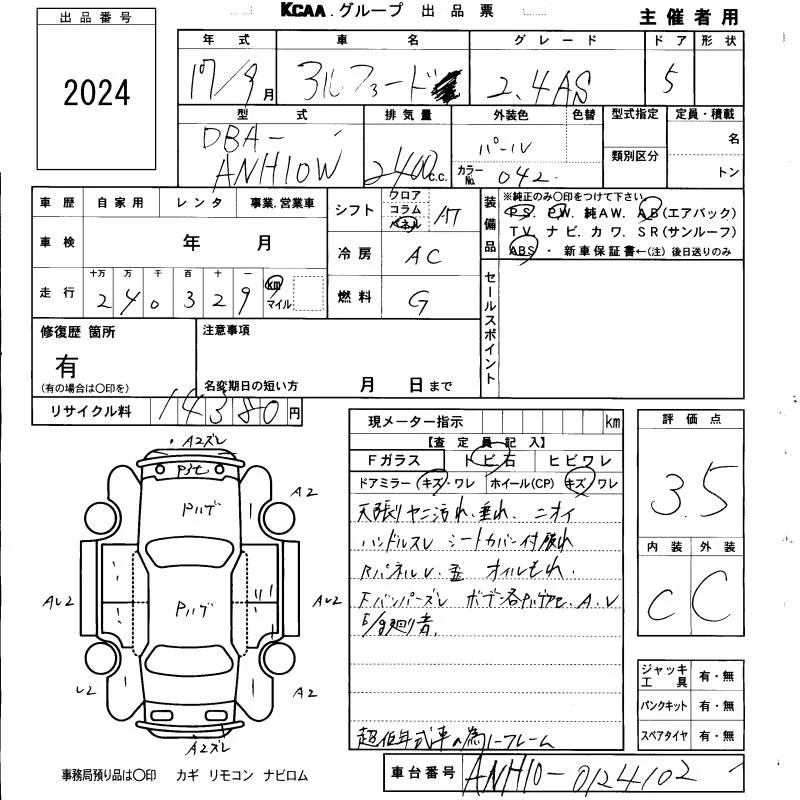 KCAA.グループ 出品票
主催者用
出品番号
2024
年式 車名 グレード ドア 形状
17/9月 アルファード 2.4AS 5
型式 排気量 外装色 色替 型式指定 定員・積載
DBA-ANH10W 2400c.c. パール カラーNo. 042 類別区分 名 トン
車歴 自家用 レンタ 事業.営業車
車検 年 月
走行 十万 万 千 百 十 一
240329 km マイル
シフト フロア コラム パネル AT
冷房 AC
燃料 G
装備品 ※純正のみ○印をつけて下さい
PS. PW. 純AW. AB(エアバック)
TV. ナビ. カワ. SR(サンルーフ)
ABS ・ 新車保証書←(注) 後日送りのみ
セールスポイント
修復歴 箇所
有
(有の場合は○印を)
注意事項
名変期日の短い方 月 日まで
リサイクル料 14380円
現メーター指示 km
【査定員記入】
Fガラス トビ石 ヒビワレ
ドアミラー キズ・ワレ ホイール(CP) キズ・ワレ
天張りヤニ汚れ、垂れ、ニオイ
ハンドルスレ シートカバー付
オイルもれ.
Fバンパーズレ A.U
超低年式車の為ノークレーム
評価点
3.5
内装 外装
C C
ジャッキ工具 有・無
パンクキット 有・無
スペアタイヤ 有・無
A2ズレ
Pハゲ
A2
Pハゲ
AU2 AU2
U2 A2
A2ズレ
事務局預り品は○印 カギ リモコン ナビロム
車台番号 ANH10-0124102